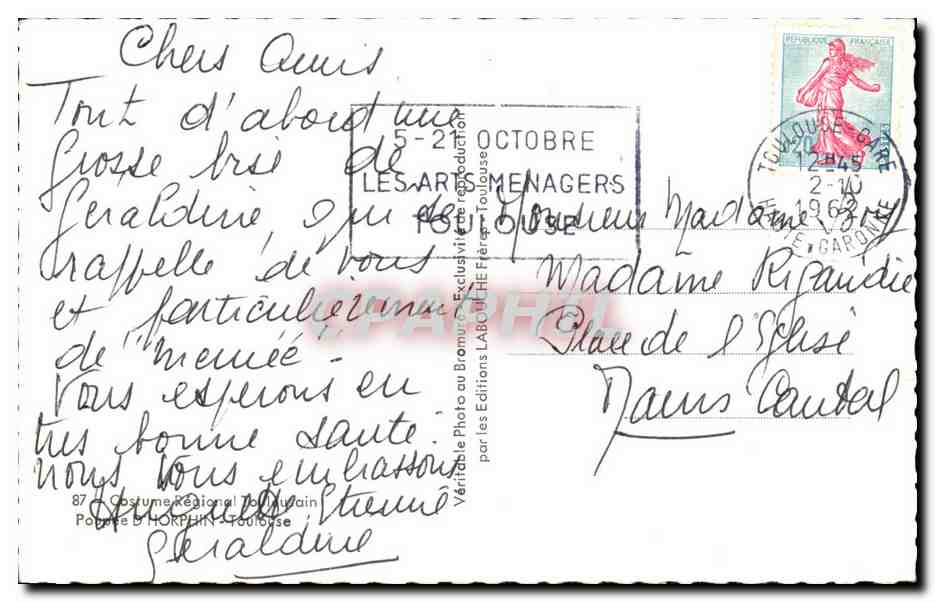 Chers Amis
Tout d'abord une
grosse bise de
Géraldine, qui se
rappelle de vous
et particulièrement
de "mémée" -
Vous espérons en
très bonne santé.
Nous vous embrassons
Etienne
Géraldine
87 - Costume Régional Toulousain
Poupée D'HORPHIN - Toulouse
Véritable Photo au Bromure - Exclusivité de reproduction
par les Editions LABOUCHE Frères - Toulouse
5-21 OCTOBRE
LES ARTS MENAGERS
TOULOUSE
REPUBLIQUE FRANÇAISE
TOULOUSE-GARE
12H45
2-10
1962
HTE GARONNE
Monsieur Madame
Madame Rigaudie
Place de l'Eglise
Maurs Cantal
CPAPHIL